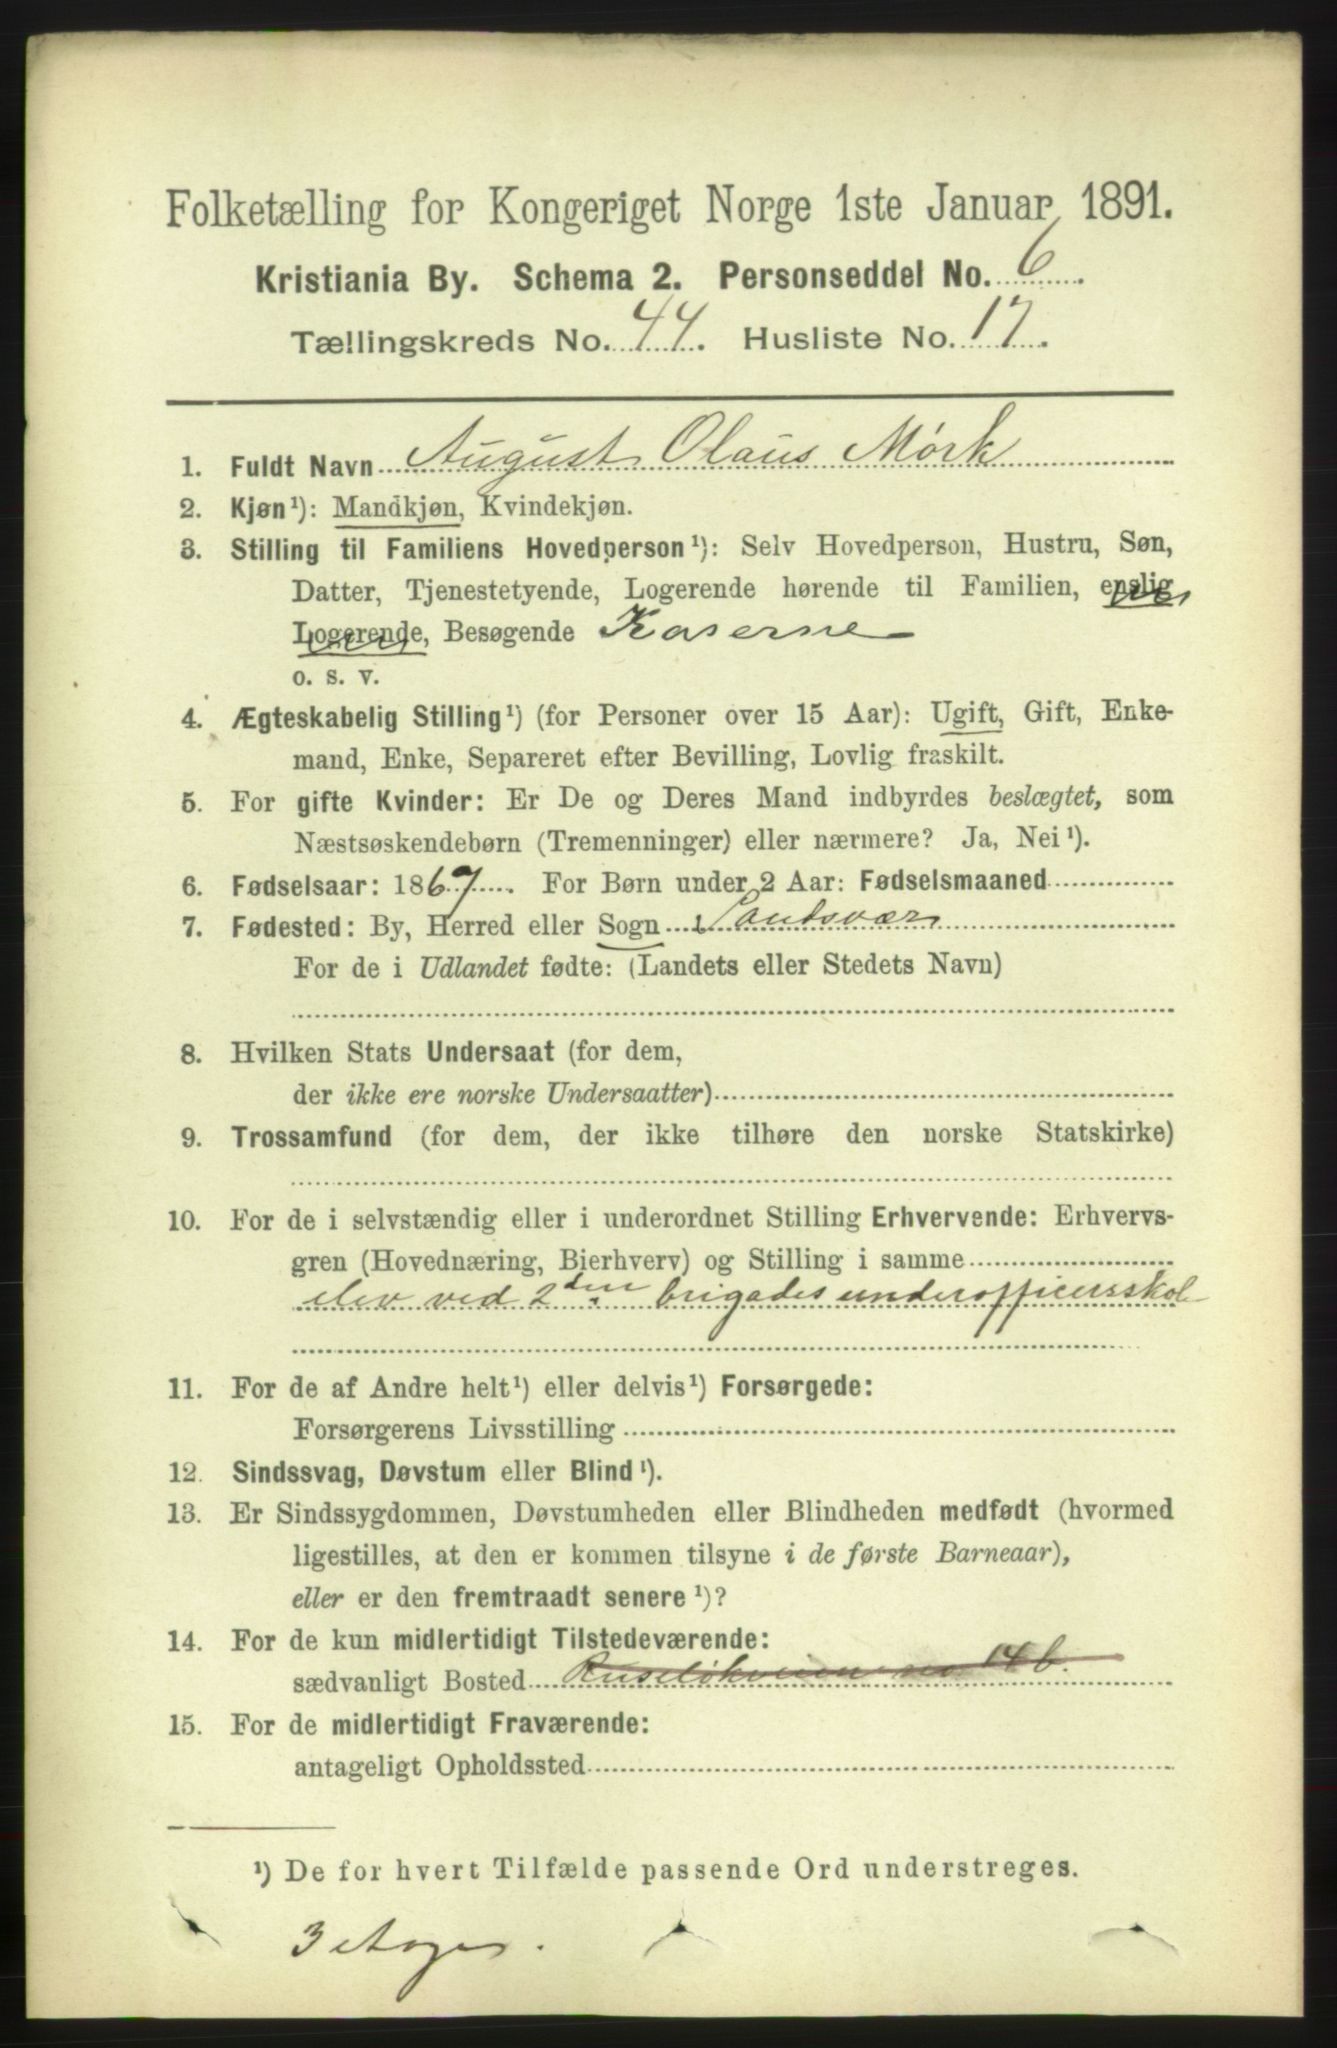 Folketælling for Kongeriget Norge 1ste Januar 1891.
Kristiania By. Schema 2. Personseddel No. 6
Tællingskreds No. 44. Husliste No. 17.
1. Fuldt Navn August Olaus Mørk
2. Kjøn¹): Mandkjøn, Kvindekjøn.
3. Stilling til Familiens Hovedperson¹): Selv Hovedperson, Hustru, Søn,
Datter, Tjenestetyende, Logerende hørende til Familien, enslig
Logerende, Besøgende Kaserne
o. s. v.
4. Ægteskabelig Stilling¹) (for Personer over 15 Aar): Ugift, Gift, Enke-
mand, Enke, Separeret efter Bevilling, Lovlig fraskilt.
5. For gifte Kvinder: Er De og Deres Mand indbyrdes beslægtet, som
Næstsøskendebørn (Tremenninger) eller nærmere? Ja, Nei¹).
6. Fødselsaar: 1867. For Børn under 2 Aar: Fødselsmaaned
7. Fødested: By, Herred eller Sogn i Sandsvær
For de i Udlandet fødte: (Landets eller Stedets Navn)
8. Hvilken Stats Undersaat (for dem,
der ikke ere norske Undersaatter)
9. Trossamfund (for dem, der ikke tilhøre den norske Statskirke)
10. For de i selvstændig eller i underordnet Stilling Erhvervende: Erhvervs-
gren (Hovednæring, Bierhverv) og Stilling i samme
elev ved 2den brigades underofficersskol
11. For de af Andre helt¹) eller delvis¹) Forsørgede:
Forsørgerens Livsstilling
12. Sindssvag, Døvstum eller Blind¹).
13. Er Sindssygdommen, Døvstumheden eller Blindheden medfødt (hvormed
ligestilles, at den er kommen tilsyne i de første Barneaar),
eller er den fremtraadt senere¹)?
14. For de kun midlertidigt Tilstedeværende:
sædvanligt Bosted Ruseløkveien no 14 b.
15. For de midlertidigt Fraværende:
antageligt Opholdssted
¹) De for hvert Tilfælde passende Ord understreges.
3 etages.